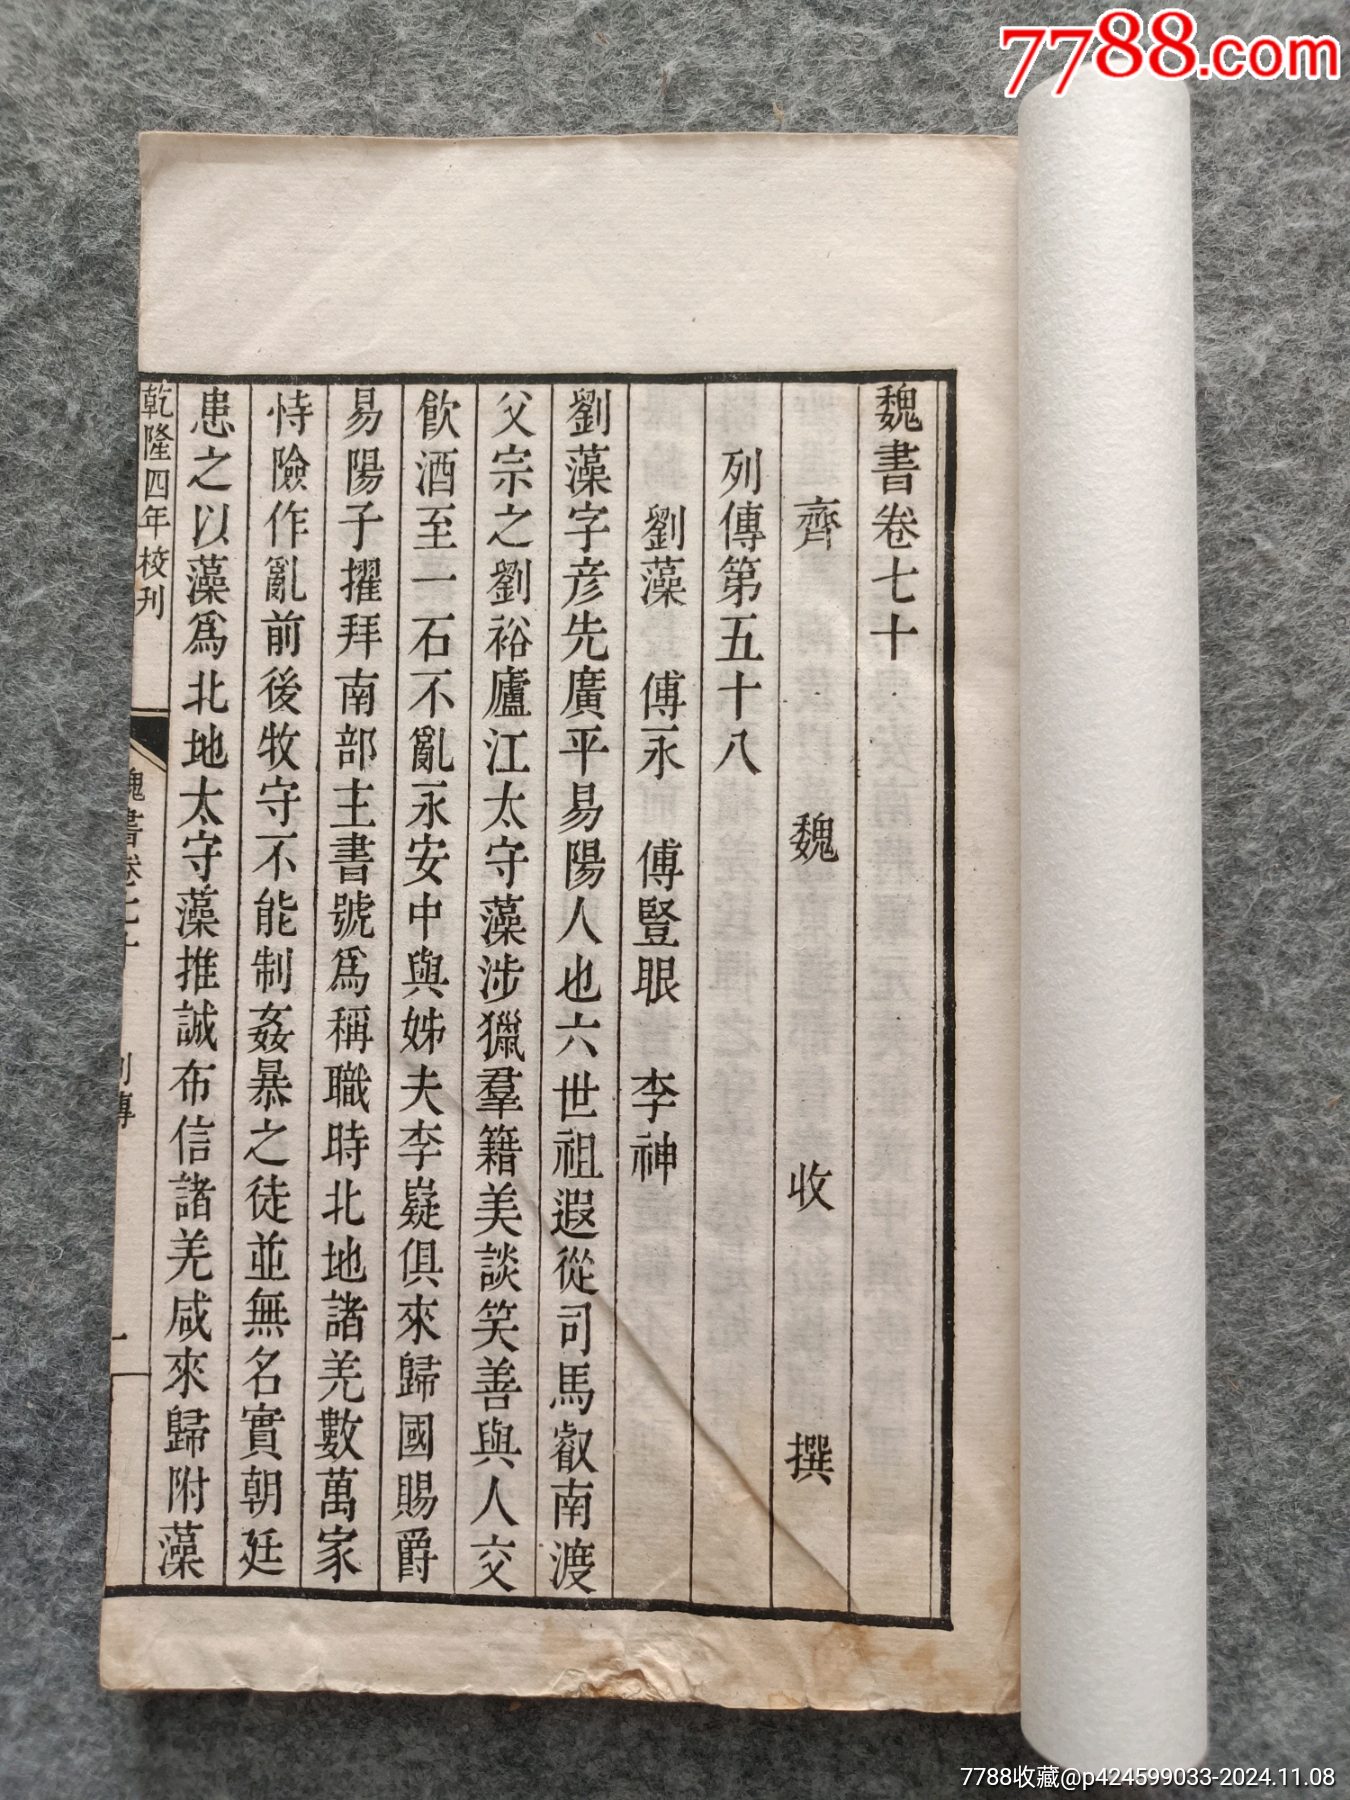 7788.com
魏書卷七十
齊 魏 收 撰
列傳第五十八
劉藻 傅永 傅豎眼 李神
劉藻字彦先廣平易陽人也六世祖遐從司馬叡南渡
父宗之劉裕廬江太守藻涉獵羣籍美談笑善與人交
飲酒至一石不亂永安中與姊夫李嶷俱來歸國賜爵
易陽子擢拜南部主書號爲稱職時北地諸羌數萬家
恃險作亂前後牧守不能制姦暴之徒並無名實朝廷
患之以藻爲北地太守藻推誠布信諸羌咸來歸附藻
乾隆四年校刊
魏書卷七十 列傳 一
7788收藏@p424599033-2024.11.08